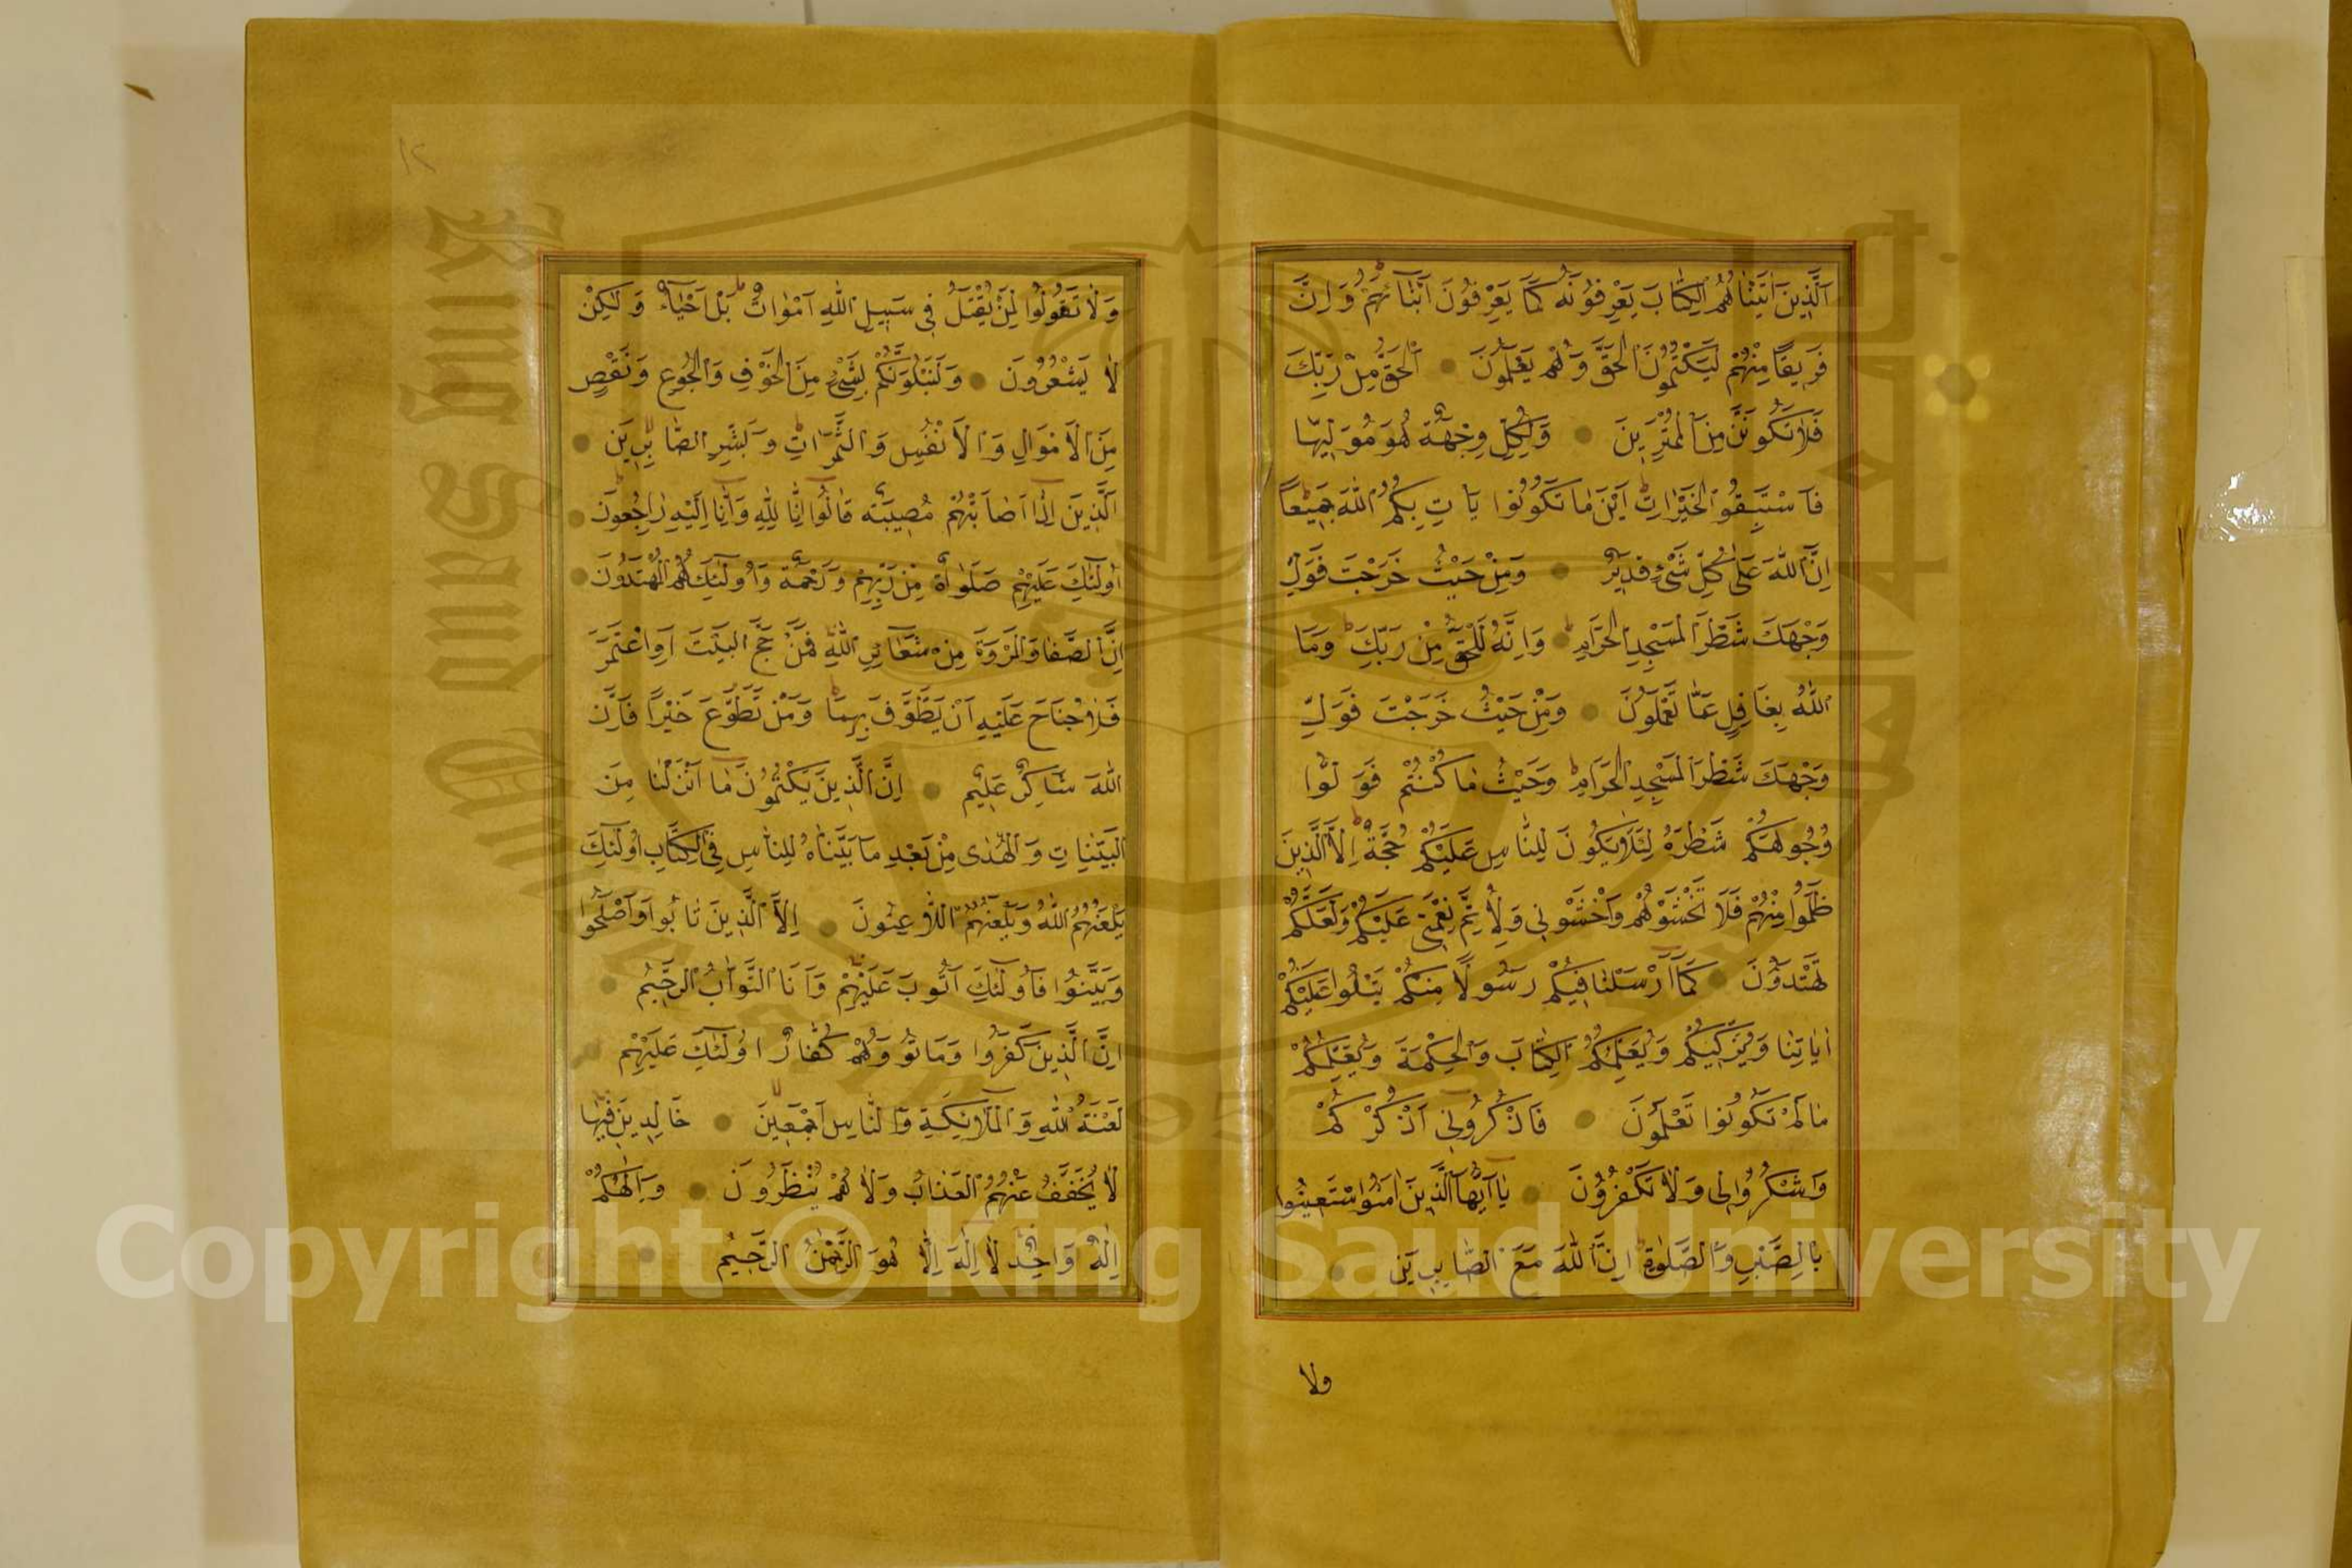 اَلَّذِينَ اٰتَيْنَاهُمُ الْكِتَابَ يَعْرِفُونَهُ كَمَا يَعْرِفُونَ اَبْنَآئَهُمْ وَاِنَّ
فَرِيقًا مِنْهُمْ لَيَكْتُمُونَ الْحَقَّ وَهُمْ يَعْلَمُونَ اَلْحَقُّ مِنْ رَبِّكَ
فَلَا تَكُونَنَّ مِنَ الْمُمْتَرِينَ وَلِكُلٍّ وِجْهَةٌ هُوَ مُوَلِّيهَا
فَاسْتَبِقُوا الْخَيْرَاتِ اَيْنَ مَا تَكُونُوا يَاْتِ بِكُمُ اللّٰهُ جَمِيعًا
اِنَّ اللّٰهَ عَلٰى كُلِّ شَيْءٍ قَدِيرٌ وَمِنْ حَيْثُ خَرَجْتَ فَوَلِّ
وَجْهَكَ شَطْرَ الْمَسْجِدِ الْحَرَامِ وَاِنَّهُ لَلْحَقُّ مِنْ رَبِّكَ وَمَا
اللّٰهُ بِغَافِلٍ عَمَّا تَعْمَلُونَ وَمِنْ حَيْثُ خَرَجْتَ فَوَلِّ
وَجْهَكَ شَطْرَ الْمَسْجِدِ الْحَرَامِ وَحَيْثُ مَا كُنْتُمْ فَوَلُّوا
وُجُوهَكُمْ شَطْرَهُ لِئَلَّا يَكُونَ لِلنَّاسِ عَلَيْكُمْ حُجَّةٌ اِلَّا الَّذِينَ
ظَلَمُوا مِنْهُمْ فَلَا تَخْشَوْهُمْ وَاخْشَوْنِي وَلِاُتِمَّ نِعْمَتِي عَلَيْكُمْ وَلَعَلَّكُمْ
تَهْتَدُونَ كَمَآ اَرْسَلْنَا فِيكُمْ رَسُولًا مِنْكُمْ يَتْلُوا عَلَيْكُمْ
اٰيَاتِنَا وَيُزَكِّيكُمْ وَيُعَلِّمُكُمُ الْكِتَابَ وَالْحِكْمَةَ وَيُعَلِّمُكُمْ
مَا لَمْ تَكُونُوا تَعْلَمُونَ فَاذْكُرُونِي اَذْكُرْكُمْ
وَاشْكُرُوا لِي وَلَا تَكْفُرُونَ يَآ اَيُّهَا الَّذِينَ اٰمَنُوا اسْتَعِينُوا
بِالصَّبْرِ وَالصَّلٰوةِ اِنَّ اللّٰهَ مَعَ الصَّابِرِينَ
ولا
١٢
وَلَا تَقُولُوا لِمَنْ يُقْتَلُ فِي سَبِيلِ اللّٰهِ اَمْوَاتٌ بَلْ اَحْيَآءٌ وَلٰكِنْ
لَا يَشْعُرُونَ وَلَنَبْلُوَنَّكُمْ بِشَيْءٍ مِنَ الْخَوْفِ وَالْجُوعِ وَنَقْصٍ
مِنَ الْاَمْوَالِ وَالْاَنْفُسِ وَالثَّمَرَاتِ وَبَشِّرِ الصَّابِرِينَ
اَلَّذِينَ اِذَا اَصَابَتْهُمْ مُصِيبَةٌ قَالُوا اِنَّا لِلّٰهِ وَاِنَّا اِلَيْهِ رَاجِعُونَ
اُولٰئِكَ عَلَيْهِمْ صَلَوَاةٌ مِنْ رَبِّهِمْ وَرَحْمَةٌ وَاُولٰئِكَ هُمُ الْمُهْتَدُونَ
اِنَّ الصَّفَا وَالْمَرْوَةَ مِنْ شَعَآئِرِ اللّٰهِ فَمَنْ حَجَّ الْبَيْتَ اَوِ اعْتَمَرَ
فَلَا جُنَاحَ عَلَيْهِ اَنْ يَطَّوَّفَ بِهِمَا وَمَنْ تَطَوَّعَ خَيْرًا فَاِنَّ
اللّٰهَ شَاكِرٌ عَلِيمٌ اِنَّ الَّذِينَ يَكْتُمُونَ مَا اَنْزَلْنَا مِنَ
الْبَيِّنَاتِ وَالْهُدٰى مِنْ بَعْدِ مَا بَيَّنَّاهُ لِلنَّاسِ فِي الْكِتَابِ اُولٰئِكَ
يَلْعَنُهُمُ اللّٰهُ وَيَلْعَنُهُمُ اللَّاعِنُونَ اِلَّا الَّذِينَ تَابُوا وَاَصْلَحُوا
وَبَيَّنُوا فَاُولٰئِكَ اَتُوبُ عَلَيْهِمْ وَاَنَا التَّوَّابُ الرَّحِيمُ
اِنَّ الَّذِينَ كَفَرُوا وَمَاتُوا وَهُمْ كُفَّارٌ اُولٰئِكَ عَلَيْهِمْ
لَعْنَةُ اللّٰهِ وَالْمَلَآئِكَةِ وَالنَّاسِ اَجْمَعِينَ خَالِدِينَ فِيهَا
لَا يُخَفَّفُ عَنْهُمُ الْعَذَابُ وَلَا هُمْ يُنْظَرُونَ وَاِلٰهُكُمْ
اِلٰهٌ وَاحِدٌ لَا اِلٰهَ اِلَّا هُوَ الرَّحْمٰنُ الرَّحِيمُ
Copyright © King Saud University